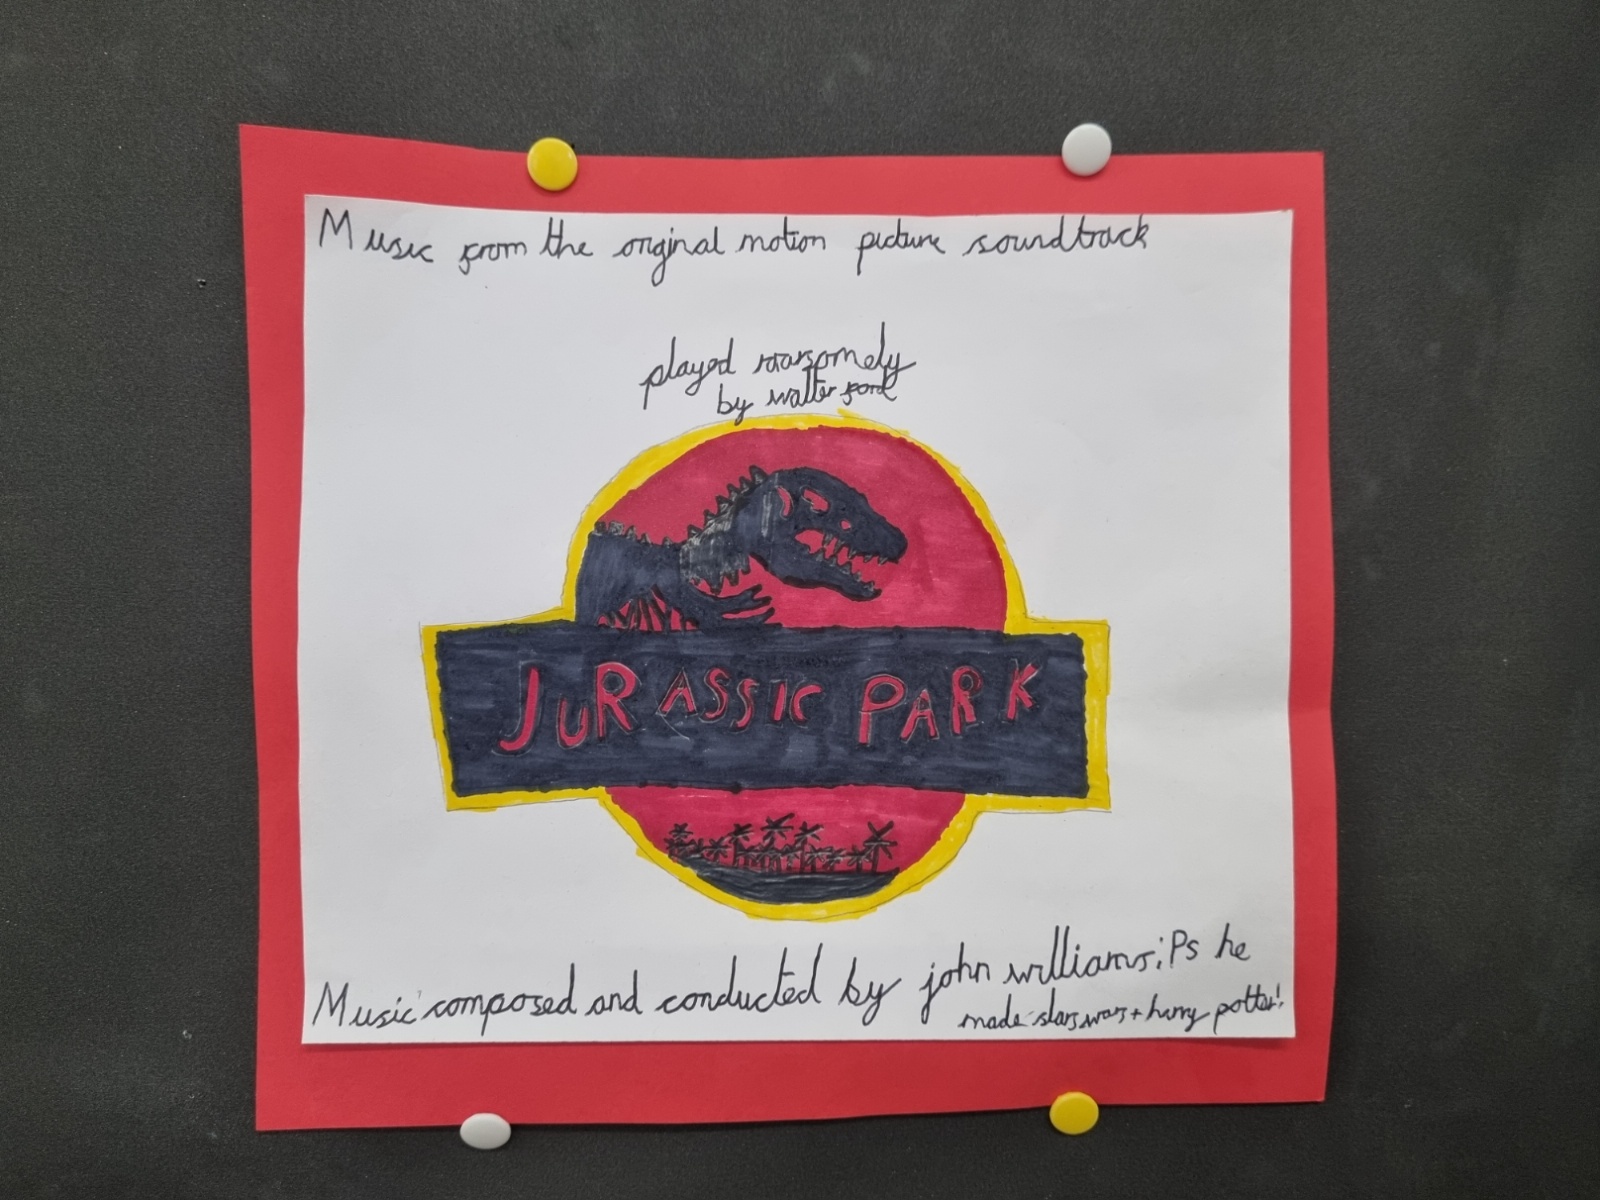 Music from the original motion picture soundtrack
played roarsomely
by walter ford
JURASSIC PARK
Music composed and conducted by john williams; Ps he
made stars wars + harry potter!